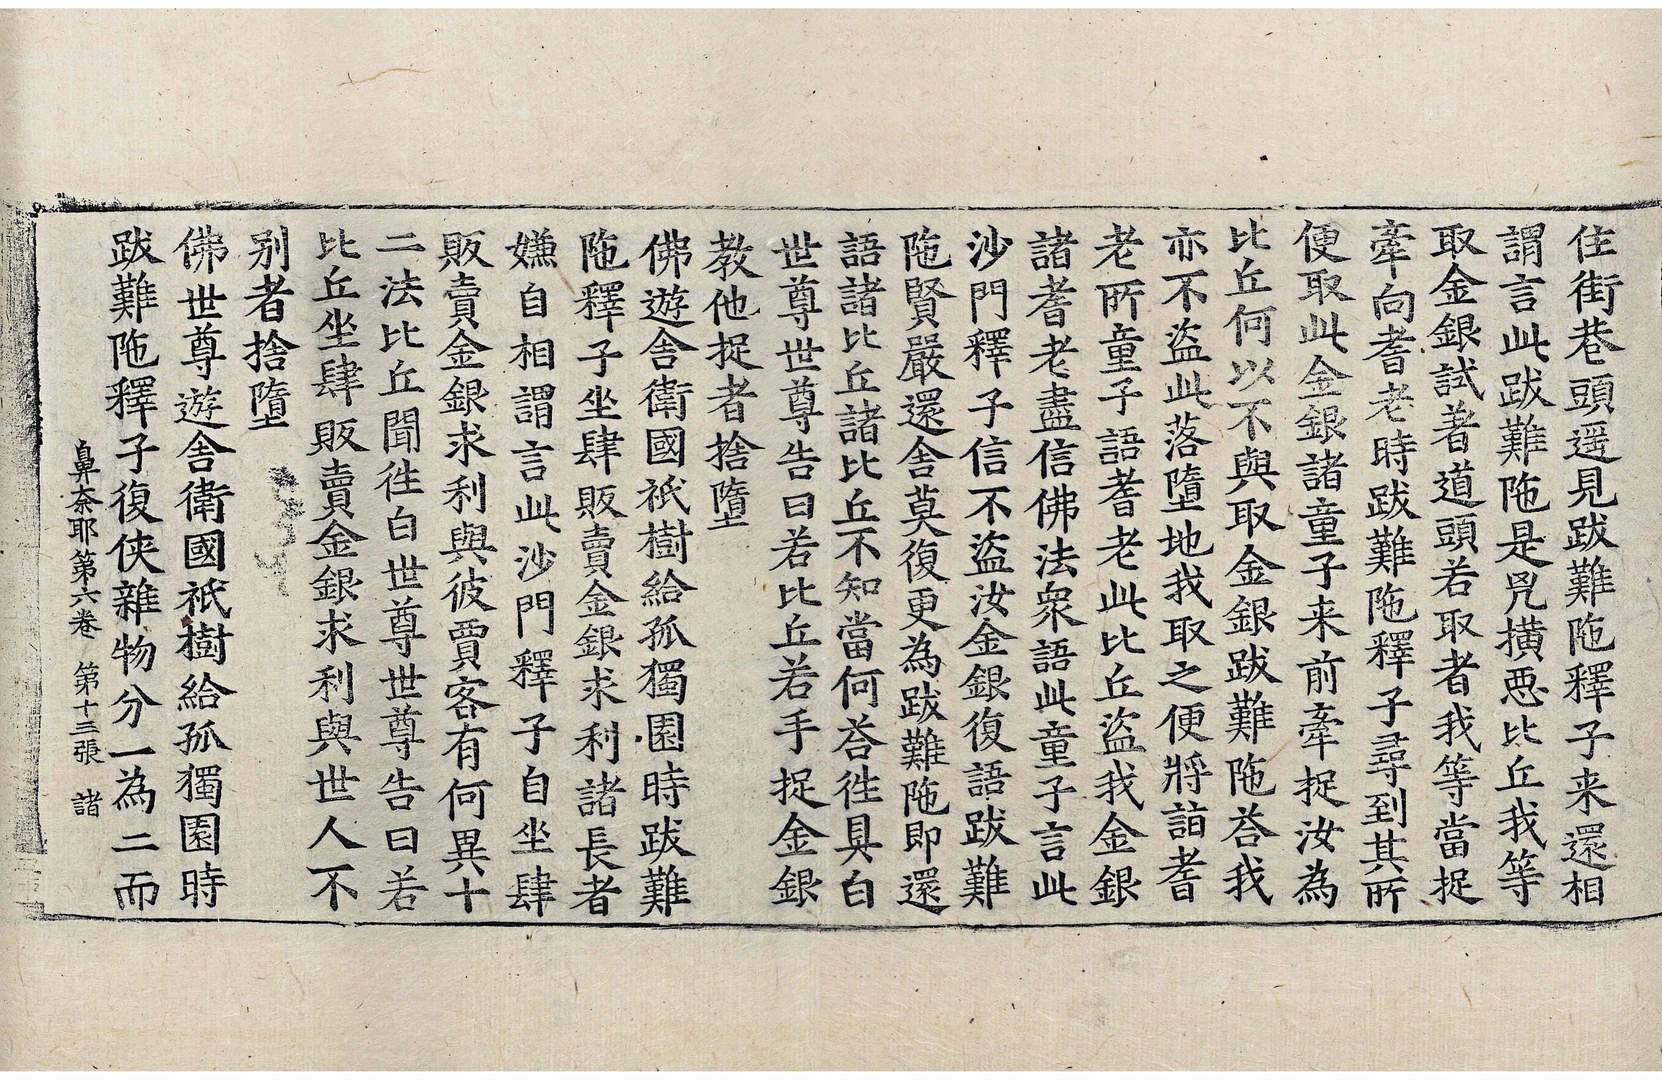 住街巷頭遥見跋難陁釋子来還相
謂言此跋難陁是兇撗惡比丘我等
取金銀試著道頭若取者我等當捉
牽向耆老時跋難陁釋子尋到其所
便取此金銀諸童子来前牽捉汝為
比丘何以不與取金銀跋難陁荅我
亦不盜此落墮地我取之便將詣耆
老所童子語耆老此比丘盜我金銀
諸耆老盡信佛法衆語此童子言此
沙門釋子信不盜汝金銀復語跋難
陁賢嚴還舍莫復更為跋難陁即還
語諸比丘諸比丘不知當何荅徃具白
世尊世尊告曰若比丘若手捉金銀
教他捉者捨墮
佛遊舍衛國祇樹給孤獨園時跋難
陁釋子坐肆販賣金銀求利諸長者
嫌自相謂言此沙門釋子自坐肆
販賣金銀求利與彼賈客有何異十
二法比丘聞徃白世尊世尊告曰若
比丘坐肆販賣金銀求利與世人不
别者捨墮
佛世尊遊舍衛國祇樹給孤獨園時
跋難陁釋子復侠雜物分一為二而
鼻奈耶第六卷 第十三張 諸